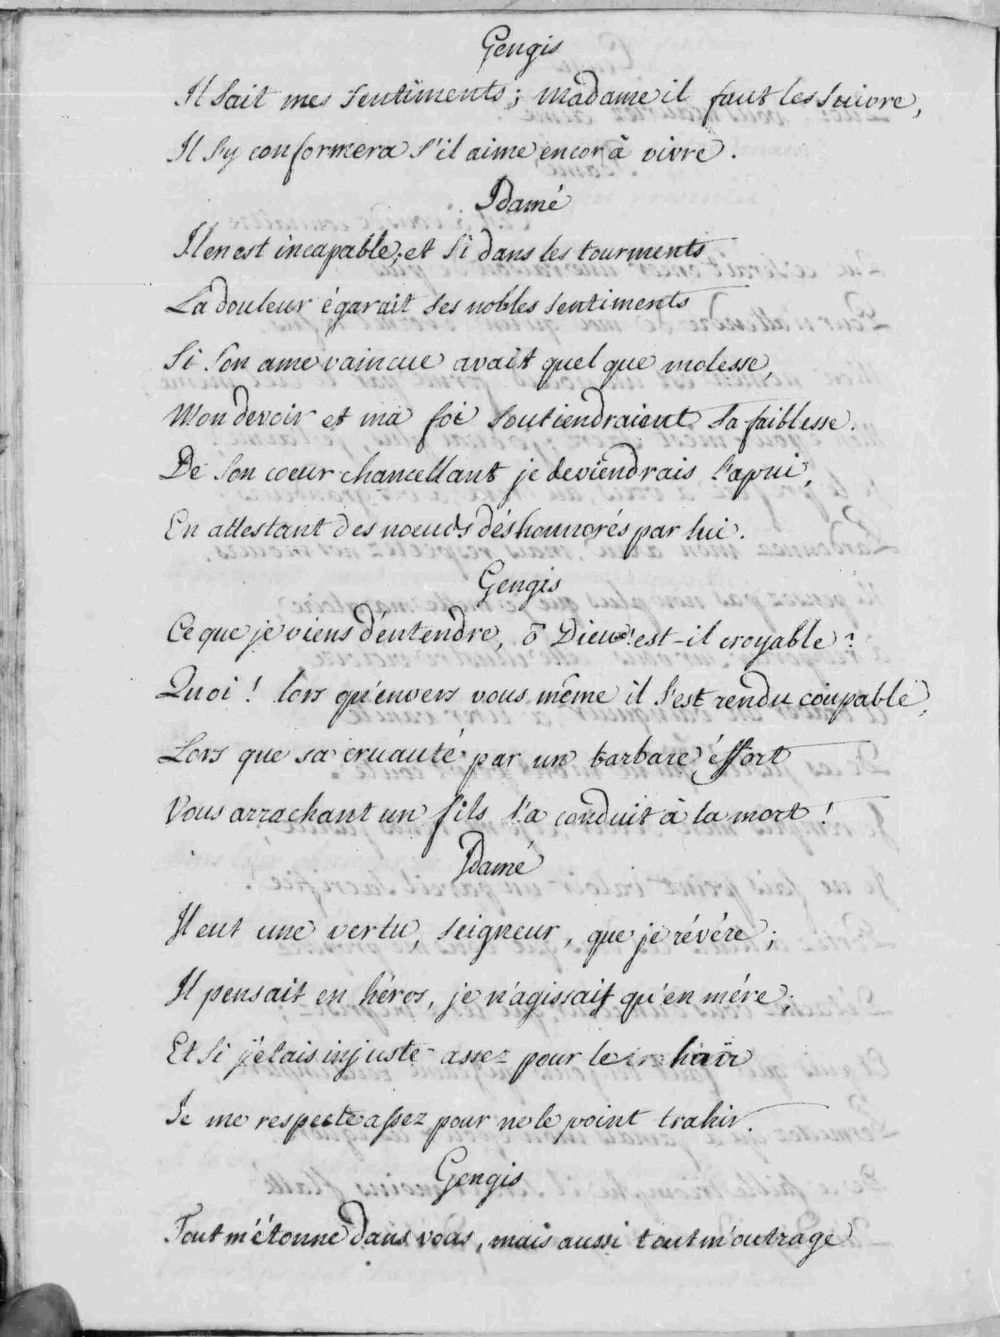 Gengis
Il sait mes sentiments; madame il faut les suivre,
Il s'y conformera s'il aime encor à vivre.
Idamé
Il en est incapable; et si dans les tourments
La douleur égarait ses nobles sentiments
Si son ame vaincue avait quelque molesse,
Mon devoir et ma foi soutiendraient sa faiblesse.
De son coeur chancellant je deviendrais l'apui,
En attestant des noeuds déshonnorés par lui.
Gengis
Ce que je viens d'entendre, ô Dieux! est-il croyable?
Quoi! lors qu'envers vous même il s'est rendu coupable,
Lors que sa cruauté par un barbare éffort
Vous arrachant un fils l'a conduit à la mort!
Idamé
Il eut une vertu, seigneur, que je révére;
Il pensait en héros, je n'agissais qu'en mére;
Et si j'étais injuste assez pour le haïr
Je me respecte assez pour ne le point trahir.
Gengis
Tout m'étonne dans vous, mais aussi tout m'outrage